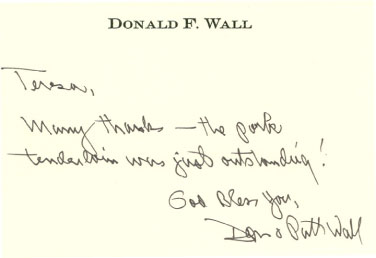 DONALD F. WALL
Teresa,
Many thanks — the pork
tenderloin was just outstanding!
God Bless You,
Don & Patti Wall